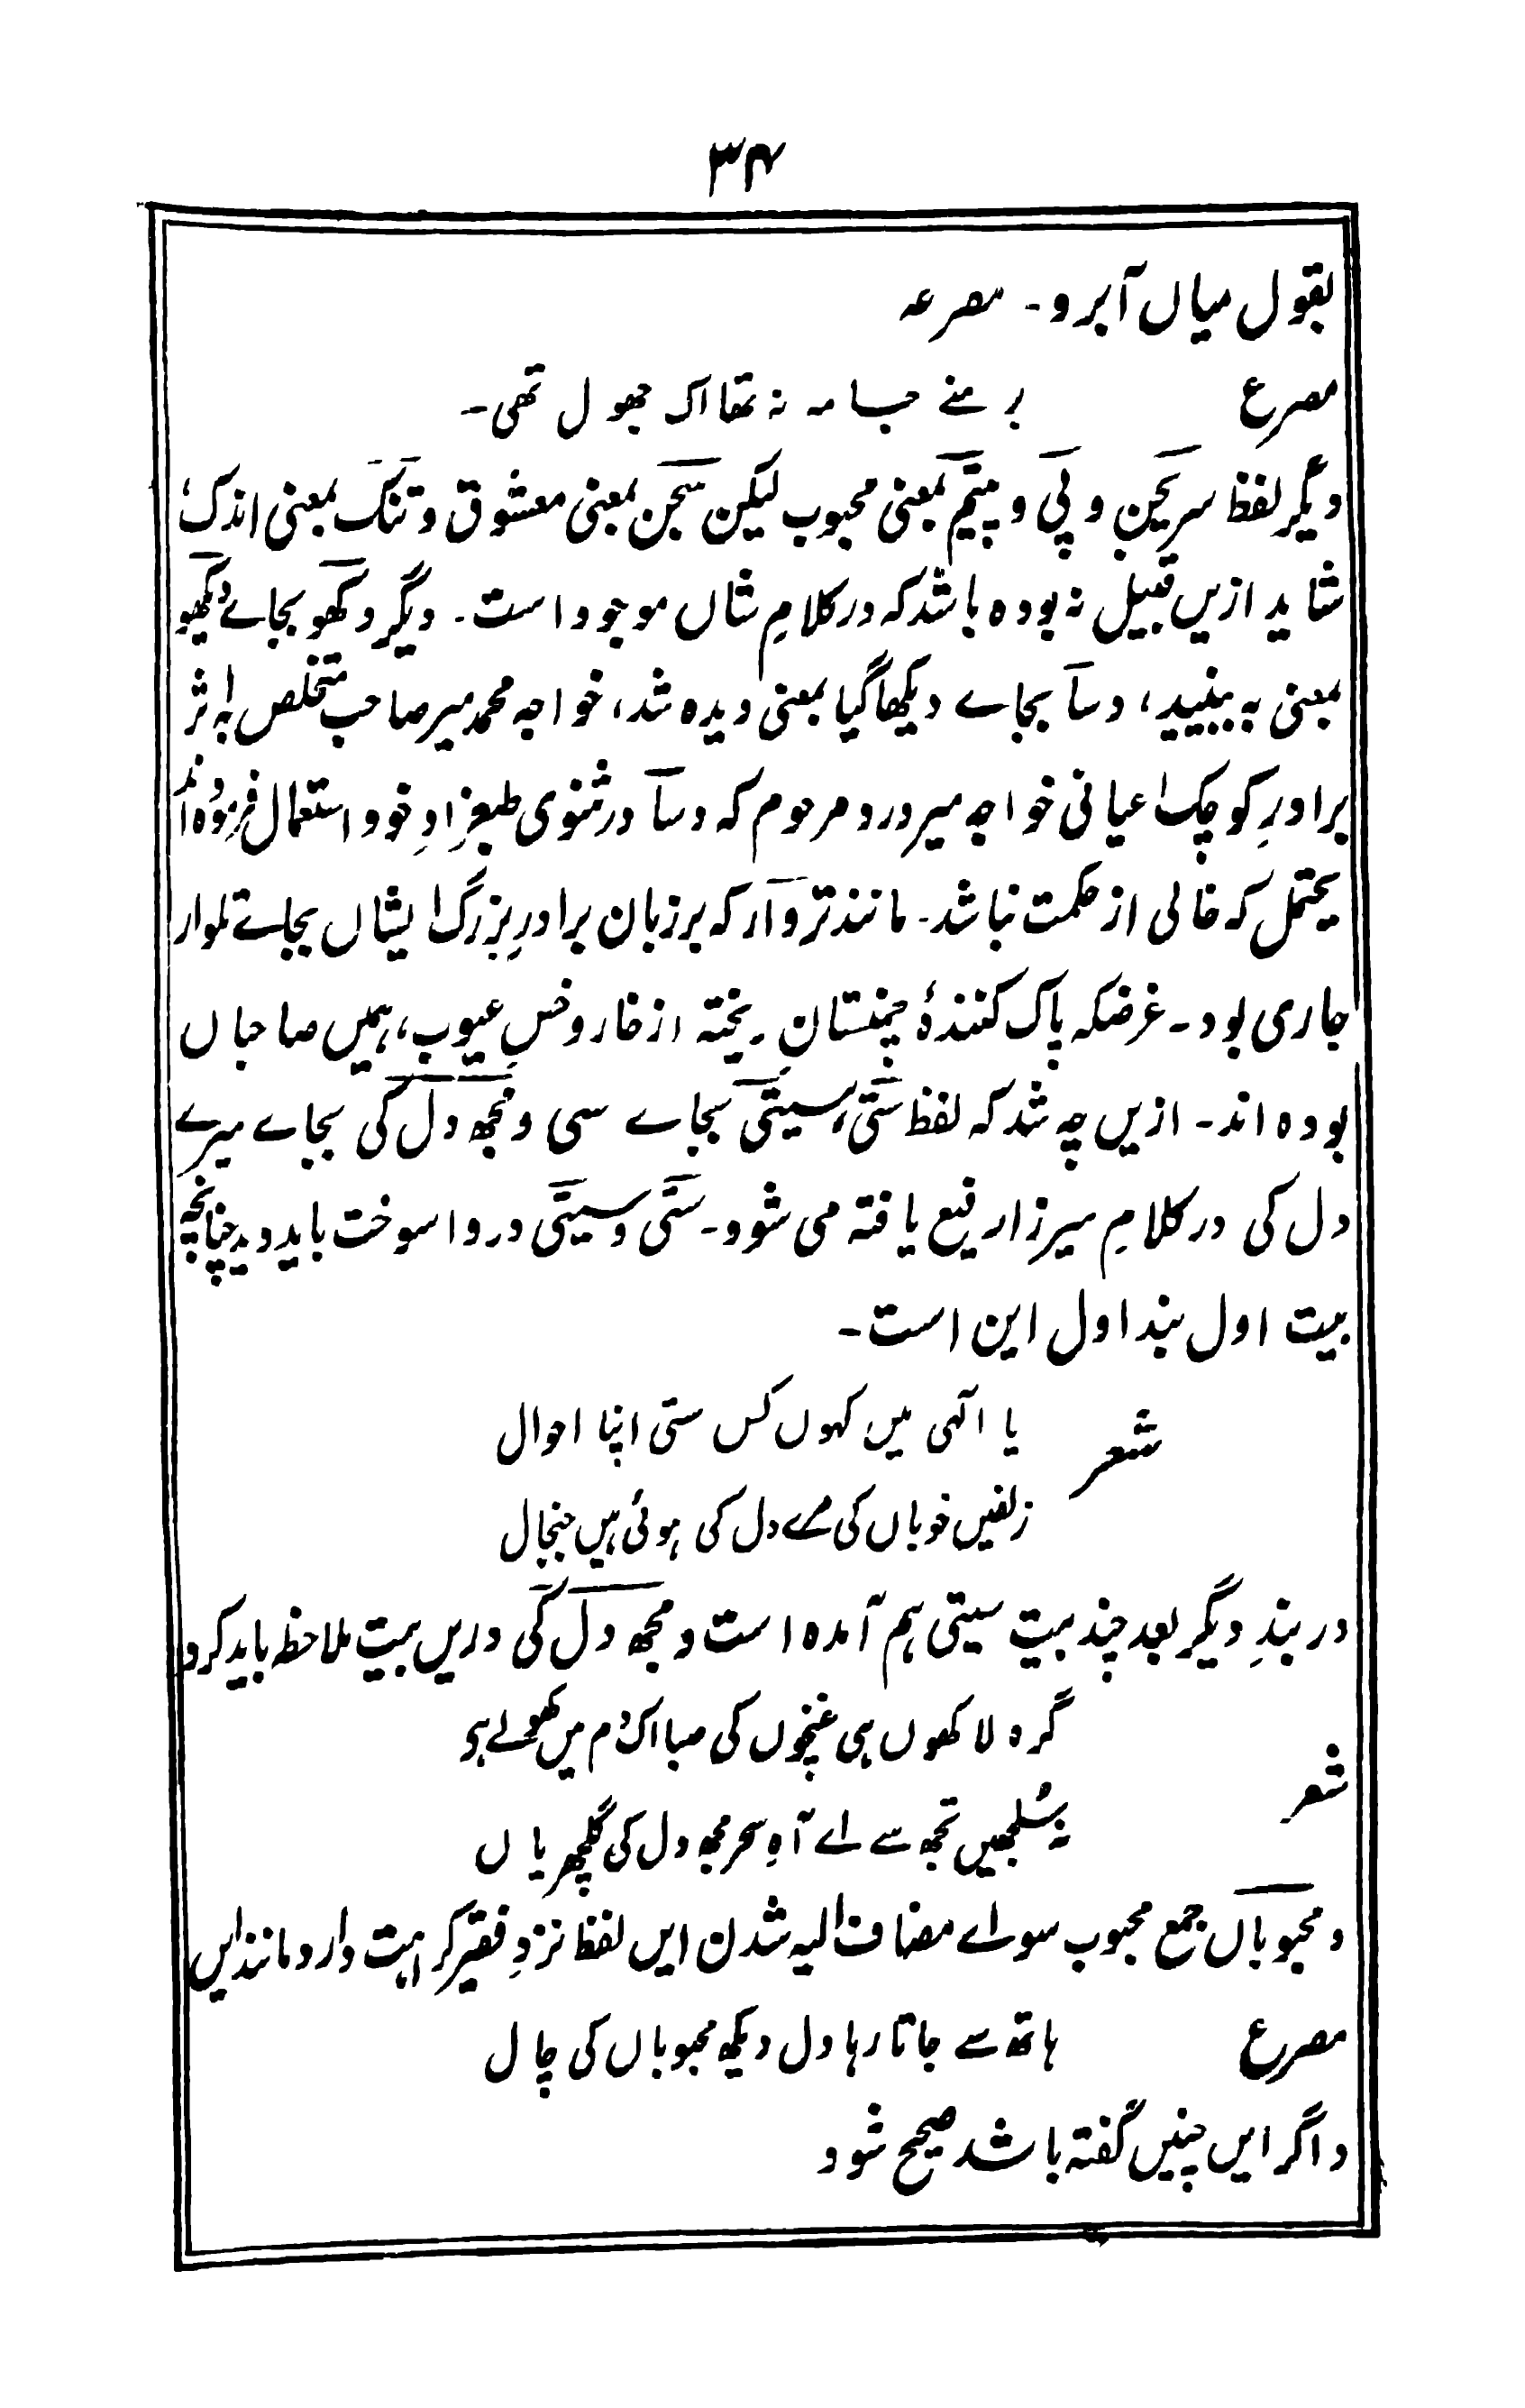 ۳۴
بقول میاں آبرو۔ مصرعہ
مصرع بر منے جامہ نہ تھا اک جھول تھی۔
دیگر لفظ سریجن و پی و پیتم بمعنی محبوب لیکن سجن بمعنی معشوق و تنک بمعنی اندک؛
شاید ازیں قبیل نہ بودہ باشد کہ در کلامِ شاں موجود است۔ دیگر دکھو بجاے دیکھو
بمعنی بہ بینید، دسا بجاے دیکھا گیا بمعنی دیدہ شد، خواجہ محمد میر صاحب متخلص بہ اثر
برادرِ کوچک اعیانی خواجہ میر درد مرحوم کہ دسا در مثنوی طبعزادِ خود استعمال فرمودہ اند
یحتمل کہ خالی از حکمت نباشد۔ مانند تروار کہ بر زبان برادرِ بزرگ ایشاں بجاے تلوار
جاری بود۔ غرضکہ پاک کنندۂ چمنستانِ ریختہ از خار و خسِ عیوب، ہمیں صاحباں
بودہ اند۔ ازیں چہ شد کہ لفظ ستی، سیتی بجاے سی و مجھ دل کی بجاے میرے
دل کی در کلامِ میرزا رفیع یافتہ می شود۔ ستی و سیتی در واسوخت باید دید چنانچہ
بیت اول بند اول این است۔
شعر یا الٰہی میں کہوں کس ستی اپنا احوال
زلفیں خوباں کی مرے دل کی ہوئی ہیں جنجال
در بندِ دیگر بعد چند بیت سیتی ہم آمدہ است و مجھ دل کی دریں بیت ملاحظہ باید کرد
شعر گرہ لاکھوں ہی غنچوں کی صبا اک دم میں کھولے ہو
یہ سلجھیں تجھ سے اے آہِ سحر مجھ دل کی گلجھریاں
و محبوباں جمع محبوب سواے مضاف الیہ شدن ایں لفظ نزدِ فقیر کراہیت دارد مانند ایں
مصرع ہاتھ سے جاتا رہا دل دیکھ محبوباں کی چال
و اگر ایں چنیں گفتہ باشد صحیح شود